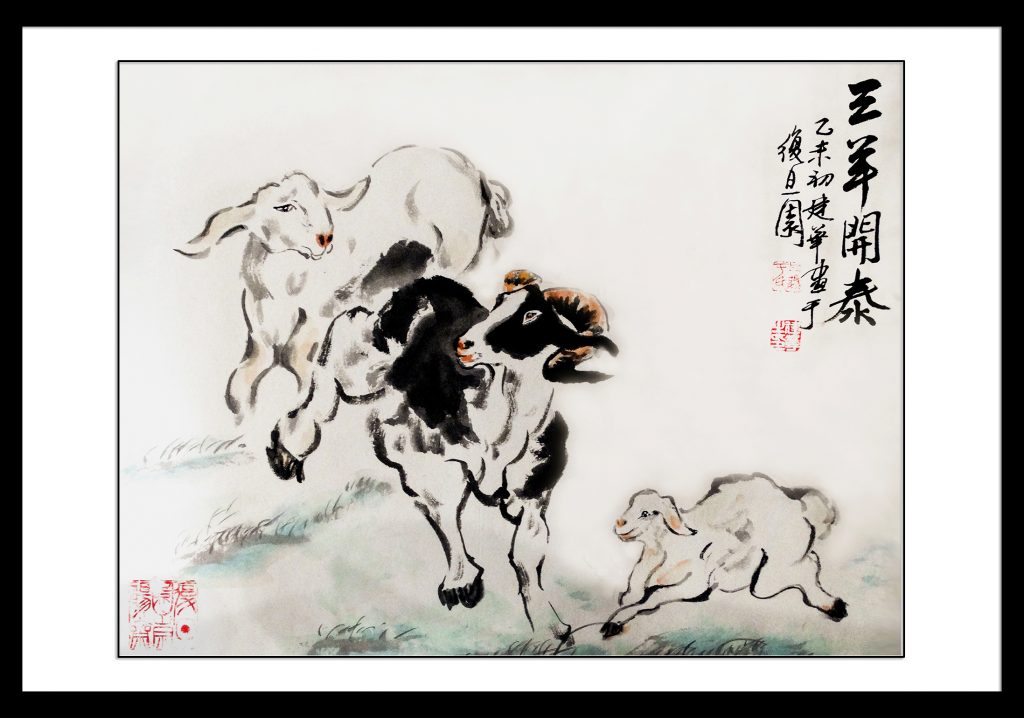 三羊開泰
乙未初建華畫于
復旦園